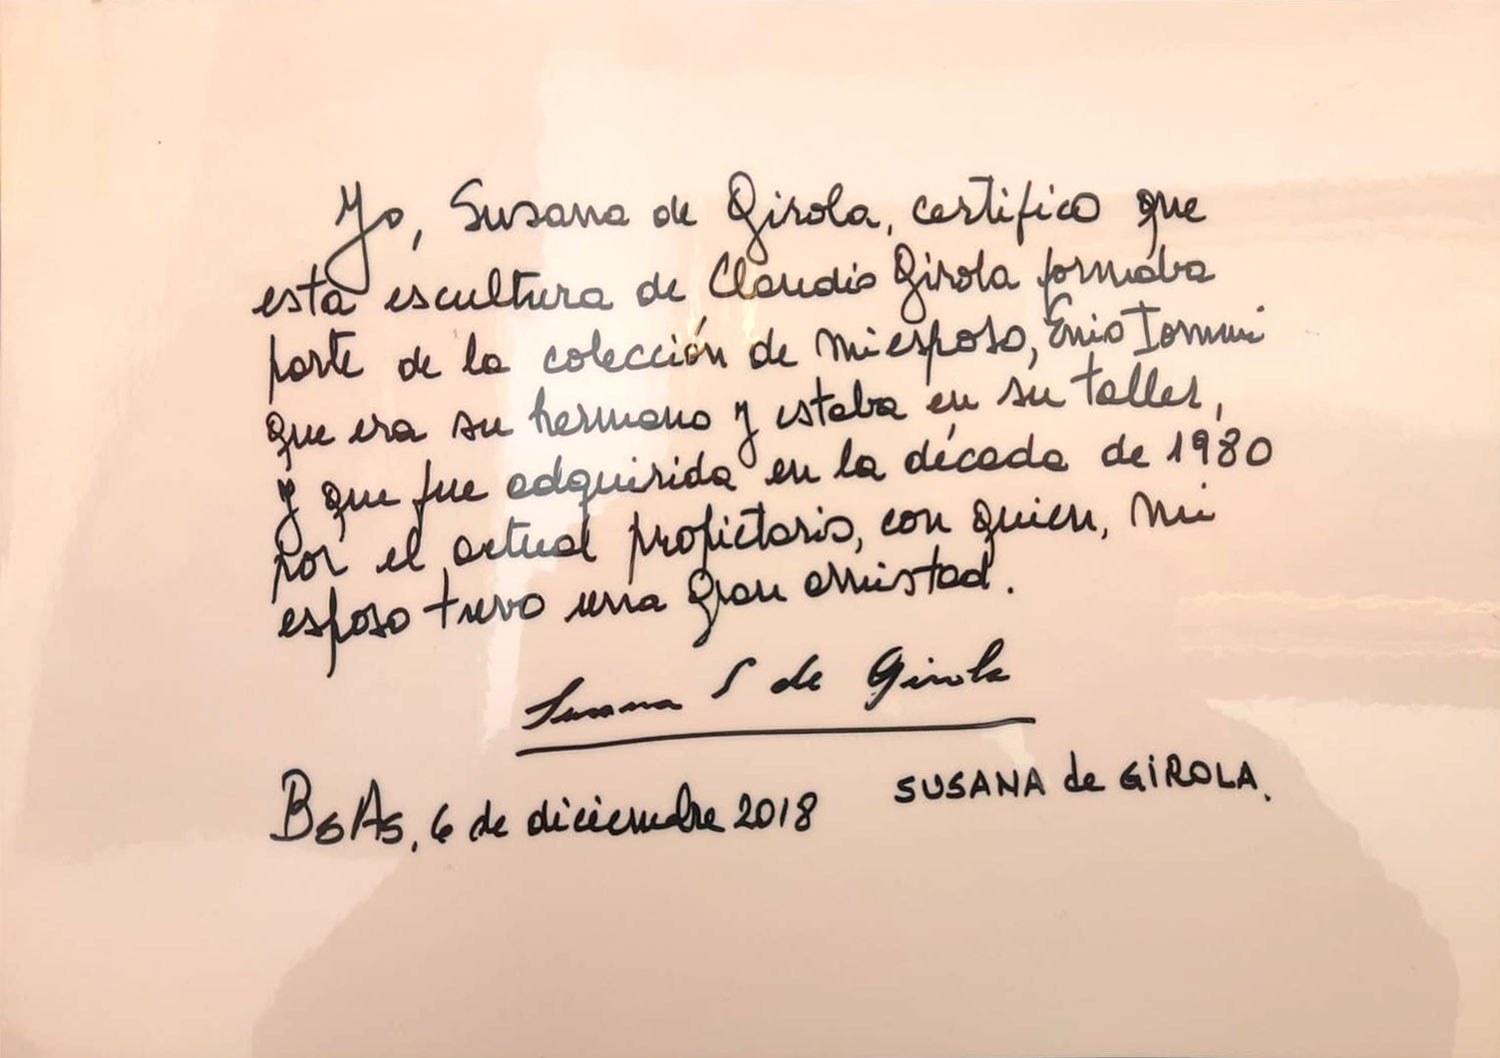 Yo, Susana de Girola, certifico que
esta escultura de Claudio Girola formaba
parte de la colección de mi esposo, Enio Iommi
que era su hermano y estaba en su taller,
y que fue adquirida en la década de 1980
por el actual propietario, con quien, mi
esposo tuvo una gran amistad.
Susana S de Girola
BsAs, 6 de diciembre 2018
SUSANA de GIROLA.